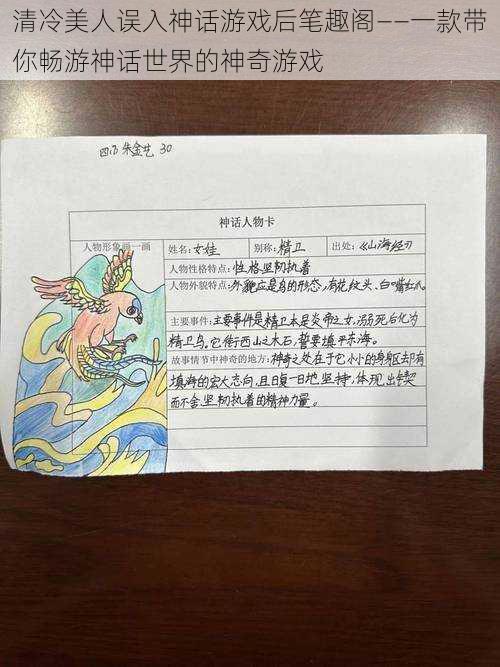 清冷美人误入神话游戏后笔趣阁——一款带
你畅游神话世界的神奇游戏
四(5) 朱金艺 30
神话人物卡
人物形象画一画
姓名:女娃 别称:精卫 出处:《山海经》
人物性格特点:性格坚韧执着
人物外貌特点:外貌应是鸟的形态,有花纹头、白嘴红爪。
主要事件:主要事件是精卫本是炎帝之女,溺死后化为
精卫鸟,它衔西山之木石,誓要填平东海。
故事情节中神奇的地方:神奇之处在于它小小的身躯却有
填海的宏大志向,且日复一日地坚持,体现出锲
而不舍、坚韧执着的精神力量。